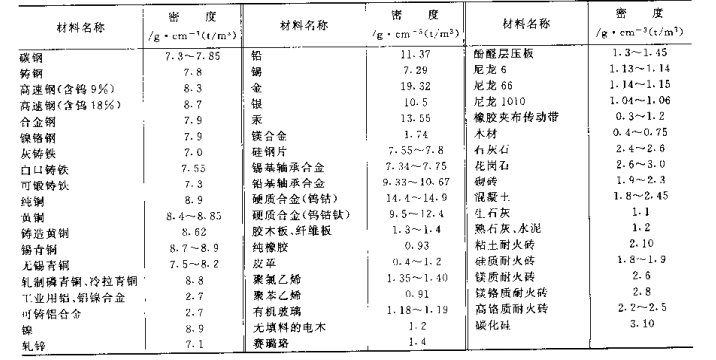 材料名称 密 度 /g·cm⁻³(t/m³)
碳钢 7.3～7.85
铸钢 7.8
高速钢(含钨9%) 8.3
高速钢(含钨18%) 8.7
合金钢 7.9
镍铬钢 7.9
灰铸铁 7.0
白口铸铁 7.55
可锻铸铁 7.3
纯铜 8.9
黄铜 8.4～8.85
铸造黄铜 8.62
锡青铜 8.7～8.9
无锡青铜 7.5～8.2
轧制磷青铜、冷拉青铜 8.8
工业用铝、铝镍合金 2.7
可铸铝合金 2.7
镍 8.9
轧锌 7.1
材料名称 密 度 /g·cm⁻³(t/m³)
铅 11.37
锡 7.29
金 19.32
银 10.5
汞 13.55
镁合金 1.74
硅钢片 7.55～7.8
锡基轴承合金 7.34～7.75
铅基轴承合金 9.33～10.67
硬质合金(钨钴) 14.4～14.9
硬质合金(钨钴钛) 9.5～12.4
胶木板、纤维板 1.3～1.4
纯橡胶 0.93
皮革 0.4～1.2
聚氯乙烯 1.35～1.40
聚苯乙烯 0.91
有机玻璃 1.18～1.19
无填料的电木 1.2
赛璐珞 1.4
材料名称 密 度 /g·cm⁻³(t/m³)
酚醛层压板 1.3～1.45
尼龙6 1.13～1.14
尼龙66 1.14～1.15
尼龙1010 1.04～1.06
橡胶夹布传动带 0.3～1.2
木材 0.4～0.75
石灰石 2.4～2.6
花岗石 2.6～3.0
砌砖 1.9～2.3
混凝土 1.8～2.45
生石灰 1.1
熟石灰、水泥 1.2
粘土耐火砖 2.10
硅质耐火砖 1.8～1.9
镁质耐火砖 2.6
镁铬质耐火砖 2.8
高铬质耐火砖 2.2～2.5
碳化硅 3.10